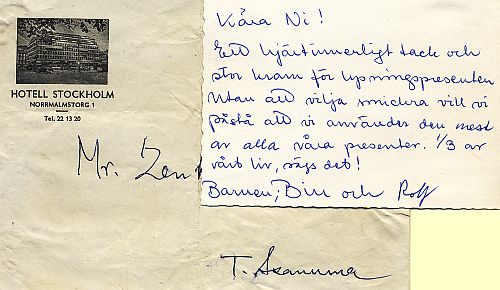 HOTELL STOCKHOLM
NORRMALMSTORG 1
Tel. 22 13 20
Mr.
Kära Ni!
Ett hjärtinnerligt tack och
stor kram för lysningspresenten
Utan att vilja smickra vill vi
påstå att vi använder den mest
av alla våra presenter. 1/3 av
vårt liv, sägs det!
och Rolf
T. Asanuma